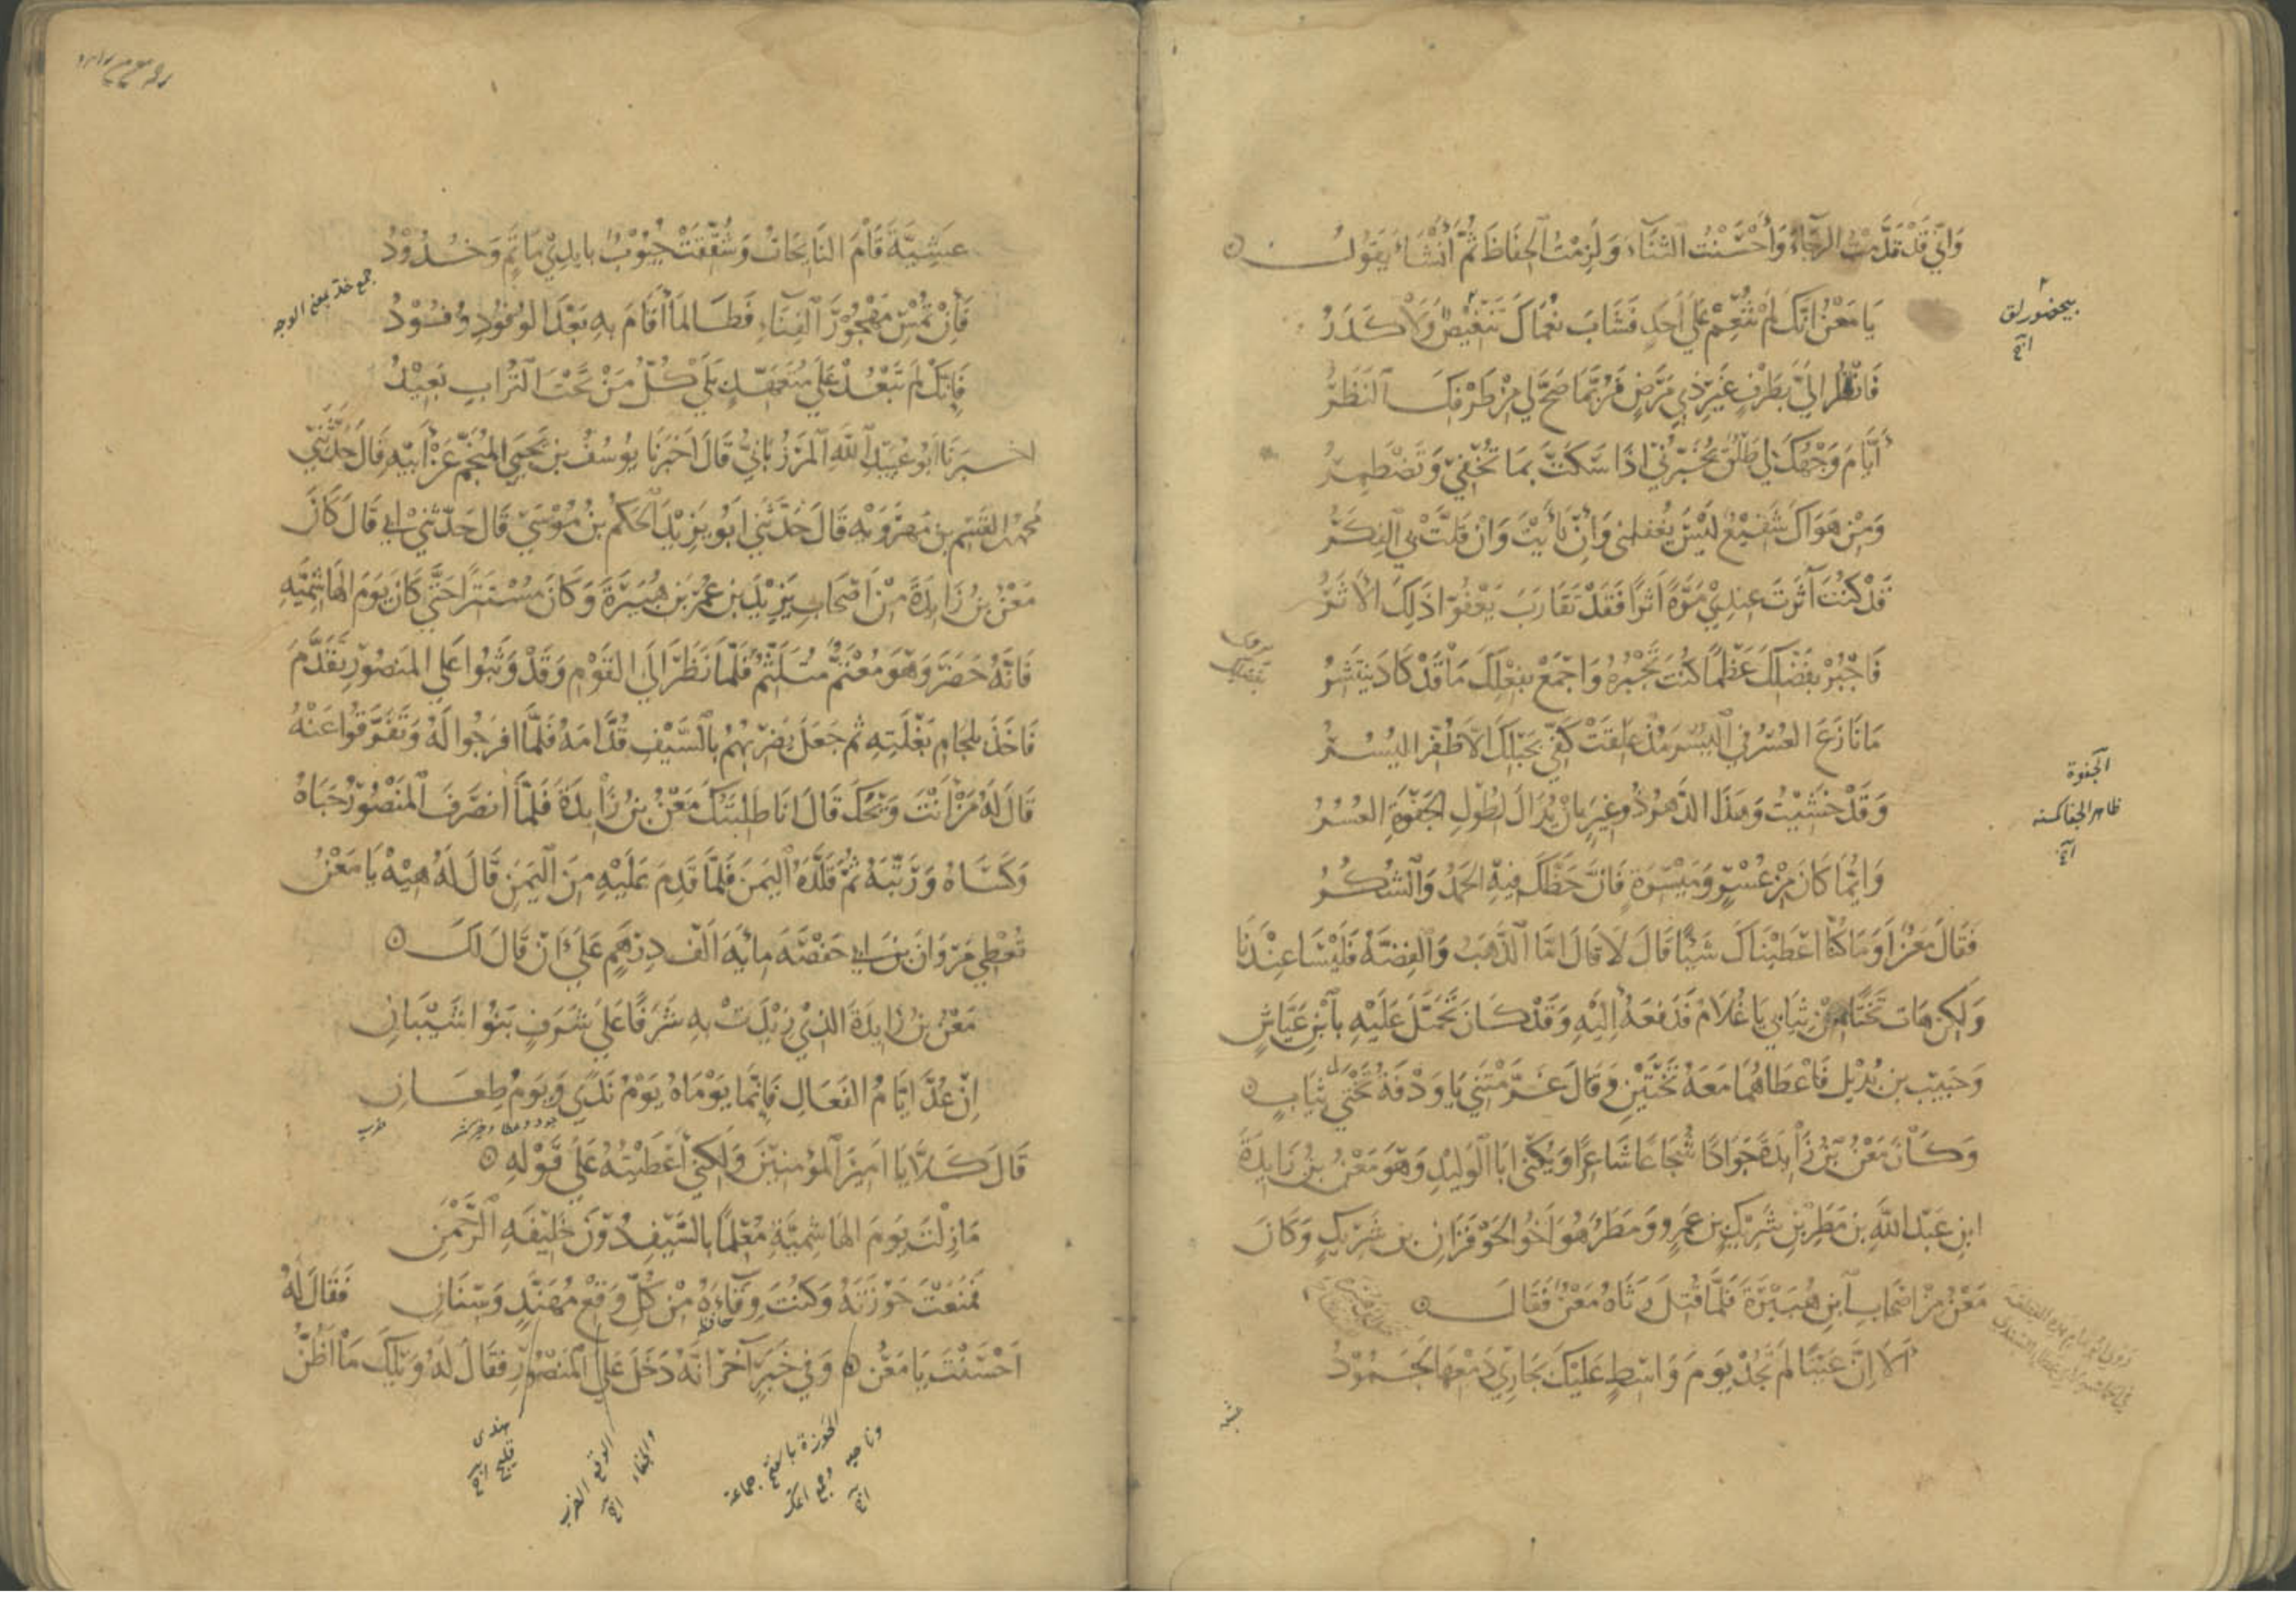 وَاِنِّي قَدْ قَدَّمْتُ الرَّجَاءَ وَأَحْسَنْتُ الثَّنَاءَ وَلَزِمْتُ الحِفَاظَ ثُمَّ أَنْشَاءَ يَقُولُ
يَا مَعْنُ اِنَّكَ لَمْ تُنْعِمْ عَلَى أَحَدٍ فَشَابَ نُعْمَاكَ تَنْغِيصٌ وَلَا كَدَرُ
فَانْظُرْ اِلَيَّ بِطَرْفٍ غَيْرِ ذِي مَرَضٍ فَرُبَّمَا صَحَّ لِي مِنْ طَرْفِكَ النَّظَرُ
أَيَّامَ وَجْهُكَ لِي طَلْقٌ يُخَبِّرُنِي اِذَا سَكَتَّ بِمَا تُخْفِي وَتَضْطَمِرُ
وَمِنْ هَوَاكَ شَفِيْعٌ لَيْسَ يُغْفِلُنِي وَاِنْ نَأَيْتَ وَاِنْ قَلَّتْ بِيَ الفِكَرُ
قَدْ كُنْتَ آثَرْتَ عِنْدِي مَرَّةً اَثَرًا فَقَدْ تَقَارَبَ يَعْفُوا ذَلِكَ الأَثَرُ
فَاجْبُرْ بِفَضْلِكَ عَظْمًا كُنْتَ تَجْبُرُهُ وَاجْمَعْ بِفِعْلِكَ مَا قَدْ كَادَ يَنْتَشِرُ
مَا نَازَعَ العُسْرُ فِي اليُسْرَ مُذْ عَلِقَتْ كَفِّي بِحَبْلِكَ اِلَّا ظَفِرَ اليُسْرُ
وَقَدْ خَشِيْتُ وَهَذَا الدَّهْرُ ذُو غِيَرٍ بِاَنْ يُدَالَ لِطُولِ الجَفْوَةِ العُسْرُ
وَاِنَّمَا كَانَ مِنْ عُسْرٍ وَمَيْسَرَةٍ فَاِنَّ حَظَّكَ فِيهِ الحَمْدُ وَالشُّكْرُ
فَقَالَ مَعْنٌ أَوَمَا كُنَّا اَعْطَيْنَاكَ شَيْئًا قَالَ لَا قَالَ اَمَّا الذَّهَبُ وَالفِضَّةُ فَلَيْسَا عِنْدَنَا
وَلَكِنْ هَاتِ تَخْتًا مِنْ ثِيَابِي يَا غُلَامُ فَدَفَعَهُ اِلَيْهِ وَقَدْ كَانَ تَحَمَّلَ عَلَيْهِ بِابْنِ عَيَّاشٍ
وَحَبِيْبِ بْنِ بُدَيْلٍ فَاَعْطَاهُمَا مَعَهُ تَخْتَيْنِ وَقَالَ غَرَّمْتَنِي يَا وَدْفَةُ تَخْتَيْ ثِيَابٍ
وَكَانَ مَعْنُ بْنُ زَايِدَةَ جَوَادًا شُجَاعًا شَاعِرًا وَيُكْنَى اَبَا الوَلِيْدِ وَهُوَ مَعْنُ بْنُ زَايِدَةَ
ابْنِ عَبْدِ اللَّهِ بْنِ مَطَرِ بْنِ شَرِيْكِ بْنِ عَمْرٍو وَمَطَرٌ هُوَ اَخُو الحَوْفَزَانِ بْنِ شَرِيْكٍ وَكَانَ
مَعْنٌ مِنْ اَصْحَابِ ابْنِ هُبَيْرَةَ فَلَمَّا قُتِلَ رَثَاهُ مَعْنٌ فَقَالَ
أَلَا اِنَّ عَيْنًا لَمْ تَجُدْ يَوْمَ وَاسِطٍ عَلَيْكَ بِجَارِي دَمْعِهَا لَجَمُوْدُ
الجفوة
عشية
عَشِيَّةَ قَامَ النَّايِحَاتُ وَشُقِّقَتْ جُيُوْبٌ بِاَيْدِيْ مَاتَمٍ وَخُدُوْدُ
جمع خد بمعنى الوجه
فَاِنْ تُمْسِ مَهْجُوْرَ الفِنَاءِ فَطَالَمَا أَقَامَ بِهِ بَعْدَ الوُفُوْدِ وُفُوْدُ
فَاِنَّكَ لَمْ تَبْعُدْ عَلَى مُتَعَهِّدٍ بَلَى كُلُّ مَنْ تَحْتَ التُّرَابِ بَعِيْدُ
اَخْبَرَنَا اَبُو عُبَيْدِ اللَّهِ المَرْزُبَانِيُّ قَالَ اَخْبَرَنَا يُوسُفُ بْنُ يَحْيَى المُنَجِّمُ عَنْ أَبِيْهِ قَالَ حَدَّثَنِي
مُحَمَّدُ بْنُ القَسِمِ بْنِ مَهْرَوَيْهِ قَالَ حَدَّثَنِي اَبُو يَزِيْدَ الحَكَمُ بْنُ مُوْسَى قَالَ حَدَّثَنِي اَبِي قَالَ كَانَ
مَعْنُ بْنُ زَايِدَةَ مِنْ اَصْحَابِ يَزِيْدَ بْنِ عُمَرَ بْنِ هُبَيْرَةَ وَكَانَ مُسْتَتِرًا حَتَّى كَانَ يَوْمَ الهَاشِمِيَّهِ
فَاِنَّهُ حَضَرَ وَهُوَ مُعْتَمٌّ مُتَلَثِّمٌ فَلَمَّا نَظَرَ اِلَى القَوْمِ وَقَدْ وَثَبُوا عَلَى المَنْصُوْرِ تَقَدَّمَ
فَاَخَذَ بِلِجَامِ بَغْلَتِهِ ثُمَّ جَعَلَ يَضْرِبُهُمْ بِالسَّيْفِ قُدَّامَهُ فَلَمَّا اَفْرَجُوا لَهُ وَتَفَرَّقُوا عَنْهُ
قَالَ لَهُ مَنْ أَنْتَ وَيْحَكَ قَالَ اَنَا طَلِبَتُكَ مَعْنُ بْنُ زَايِدَةَ فَلَمَّا اَنْصَرَفَ المَنْصُوْرُ حَبَاهُ
وَكَسَاهُ وَرَتَّبَهُ ثُمَّ قَلَّدَهُ اليَمَنَ فَلَمَّا قَدِمَ عَلَيْهِ مِنَ اليَمَنِ قَالَ لَهُ هِيْهْ يَا مَعْنُ
تُعْطِي مَرْوَانَ بْنَ اَبِي حَفْصَةَ مِائَةَ اَلْفِ دِرْهَمٍ عَلَى اَنْ قَالَ لَكَ
مَعْنُ بْنُ زَايِدَةَ الَّذِيْ زِيْدَتْ بِهِ شَرَفًا عَلَى شَرَفٍ بَنُوا شَيْبَانِ
اِنْ عُدَّ اَيَّامُ الفَعَالِ فَاِنَّمَا يَوْمَاهُ يَوْمُ نَدًى وَيَوْمُ طِعَانِ
قَالَ كَلَّا يَا اَمِيْرَ المُؤْمِنِيْنَ وَلَكِنِّي أَعْطَيْتُهُ عَلَى قَوْلِهِ
مَازِلْتَ يَوْمَ الهَاشِمِيَّةِ مُعْلِمًا بِالسَّيْفِ دُوْنَ خَلِيْفَةِ الرَّحْمَنِ
فَمَنَعْتَ حَوْزَتَهُ وَكُنْتَ وِقَاءَهُ مِنْ كُلِّ وَقْعِ مُهَنَّدٍ وَسِنَانِ فَقَالَ لَهُ
اَحْسَنْتَ يَا مَعْنُ وَفِي خَبَرٍ آخَرَ اَنَّهُ دَخَلَ عَلَى المَنْصُوْرِ فَقَالَ لَهُ وَيْلَكَ مَا اَظُنُّ
الحوزة بالفتح جماعة
الوقع الضرب